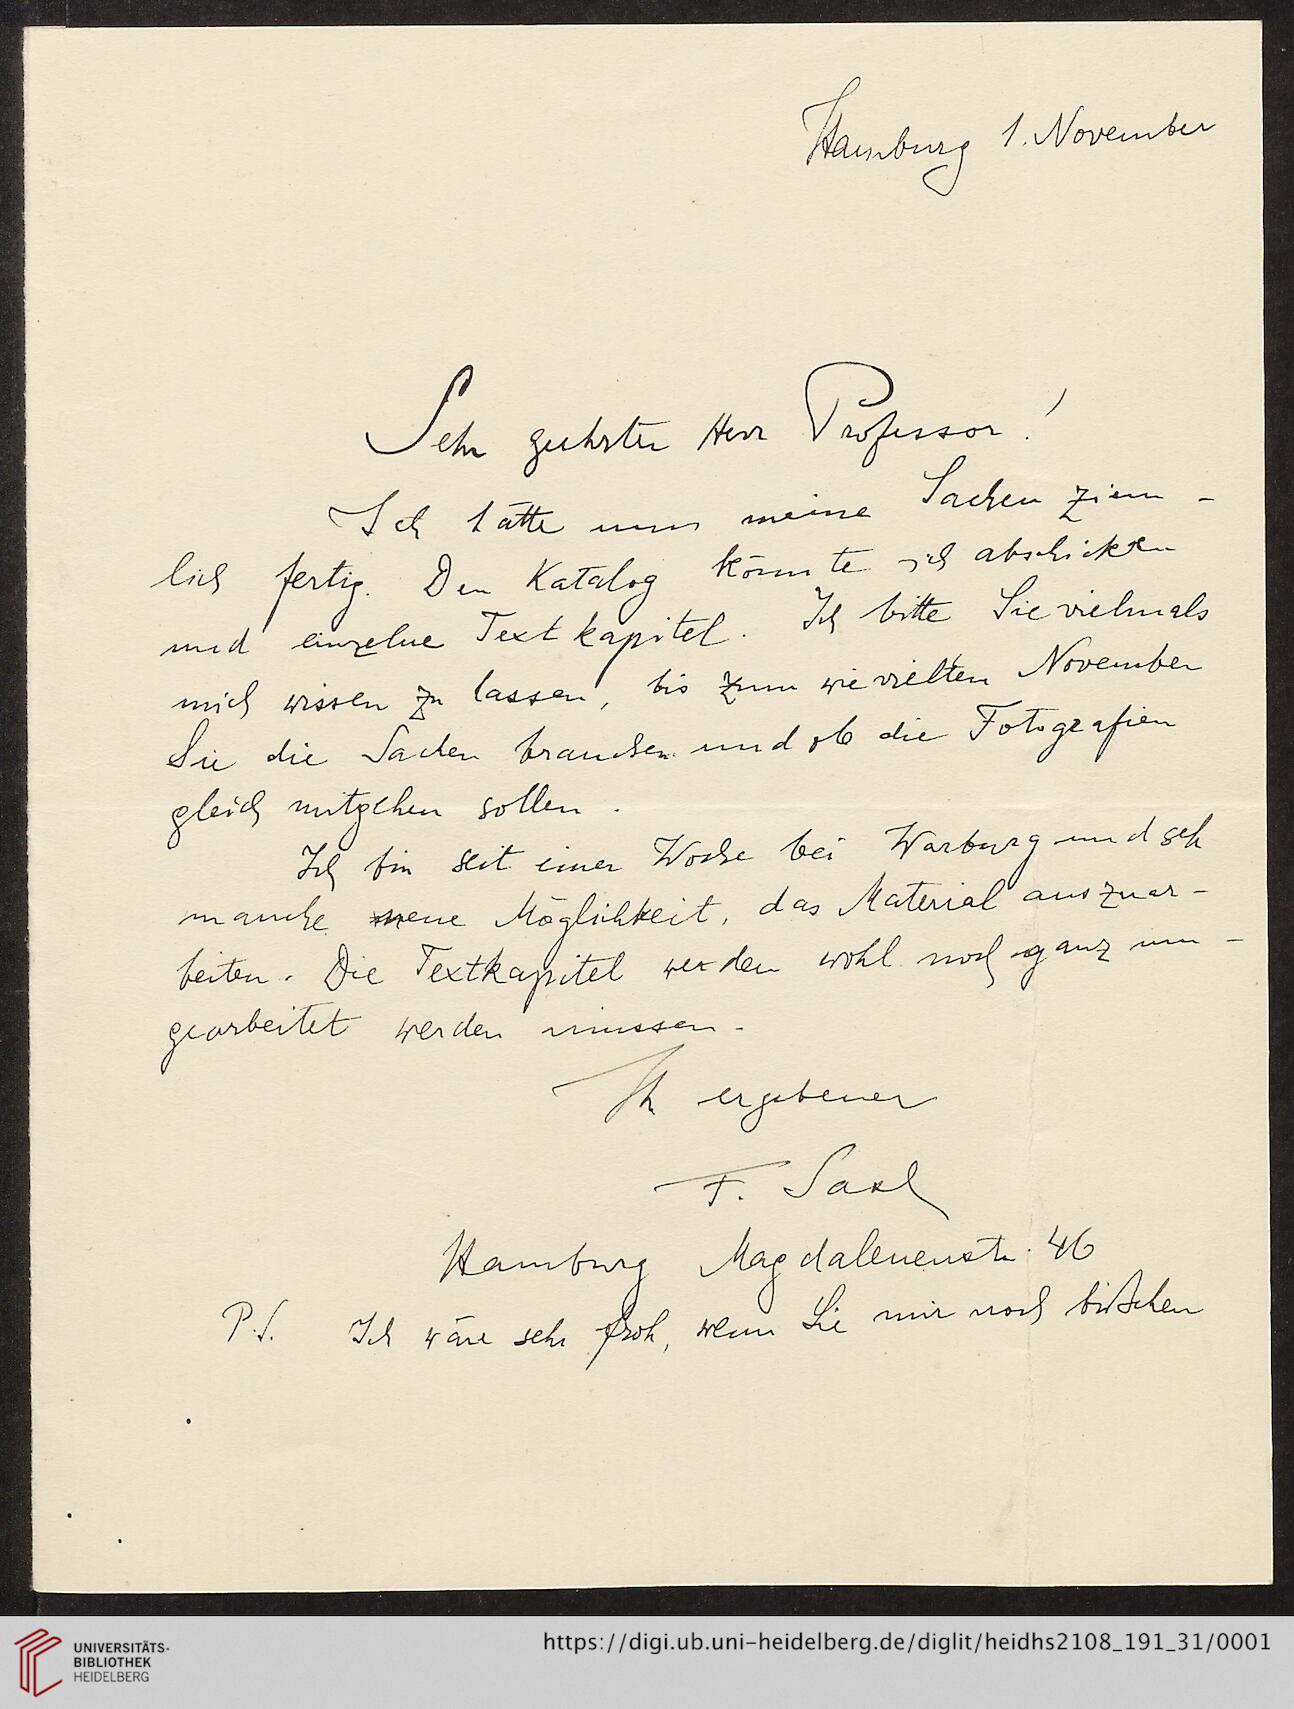 Hamburg 1. November
Sehr geehrter Herr Professor!
Ich hätte nun meine Sachen ziem-
lich fertig. Den Katalog könnte ich abschicken
und einzelne Textkapitel. Ich bitte Sie vielmals
mich wissen zu lassen, bis zum wievielten November
Sie die Sachen brauchen und ob die Fotografien
gleich mitgehen sollen.
Ich bin seit einer Woche bei Warburg und seh
manche neue Möglichkeit, das Material auszuar-
beiten. Die Textkapitel werden wohl noch ganz um-
gearbeitet werden müssen.
Ihr ergebener
F. Saxl
Hamburg Magdalenenstr. 46
P.S. Ich wäre sehr froh, wenn Sie mir noch bisschen
UNIVERSITÄTS-
BIBLIOTHEK
HEIDELBERG
https://digi.ub.uni-heidelberg.de/diglit/heidhs2108_191_31/0001